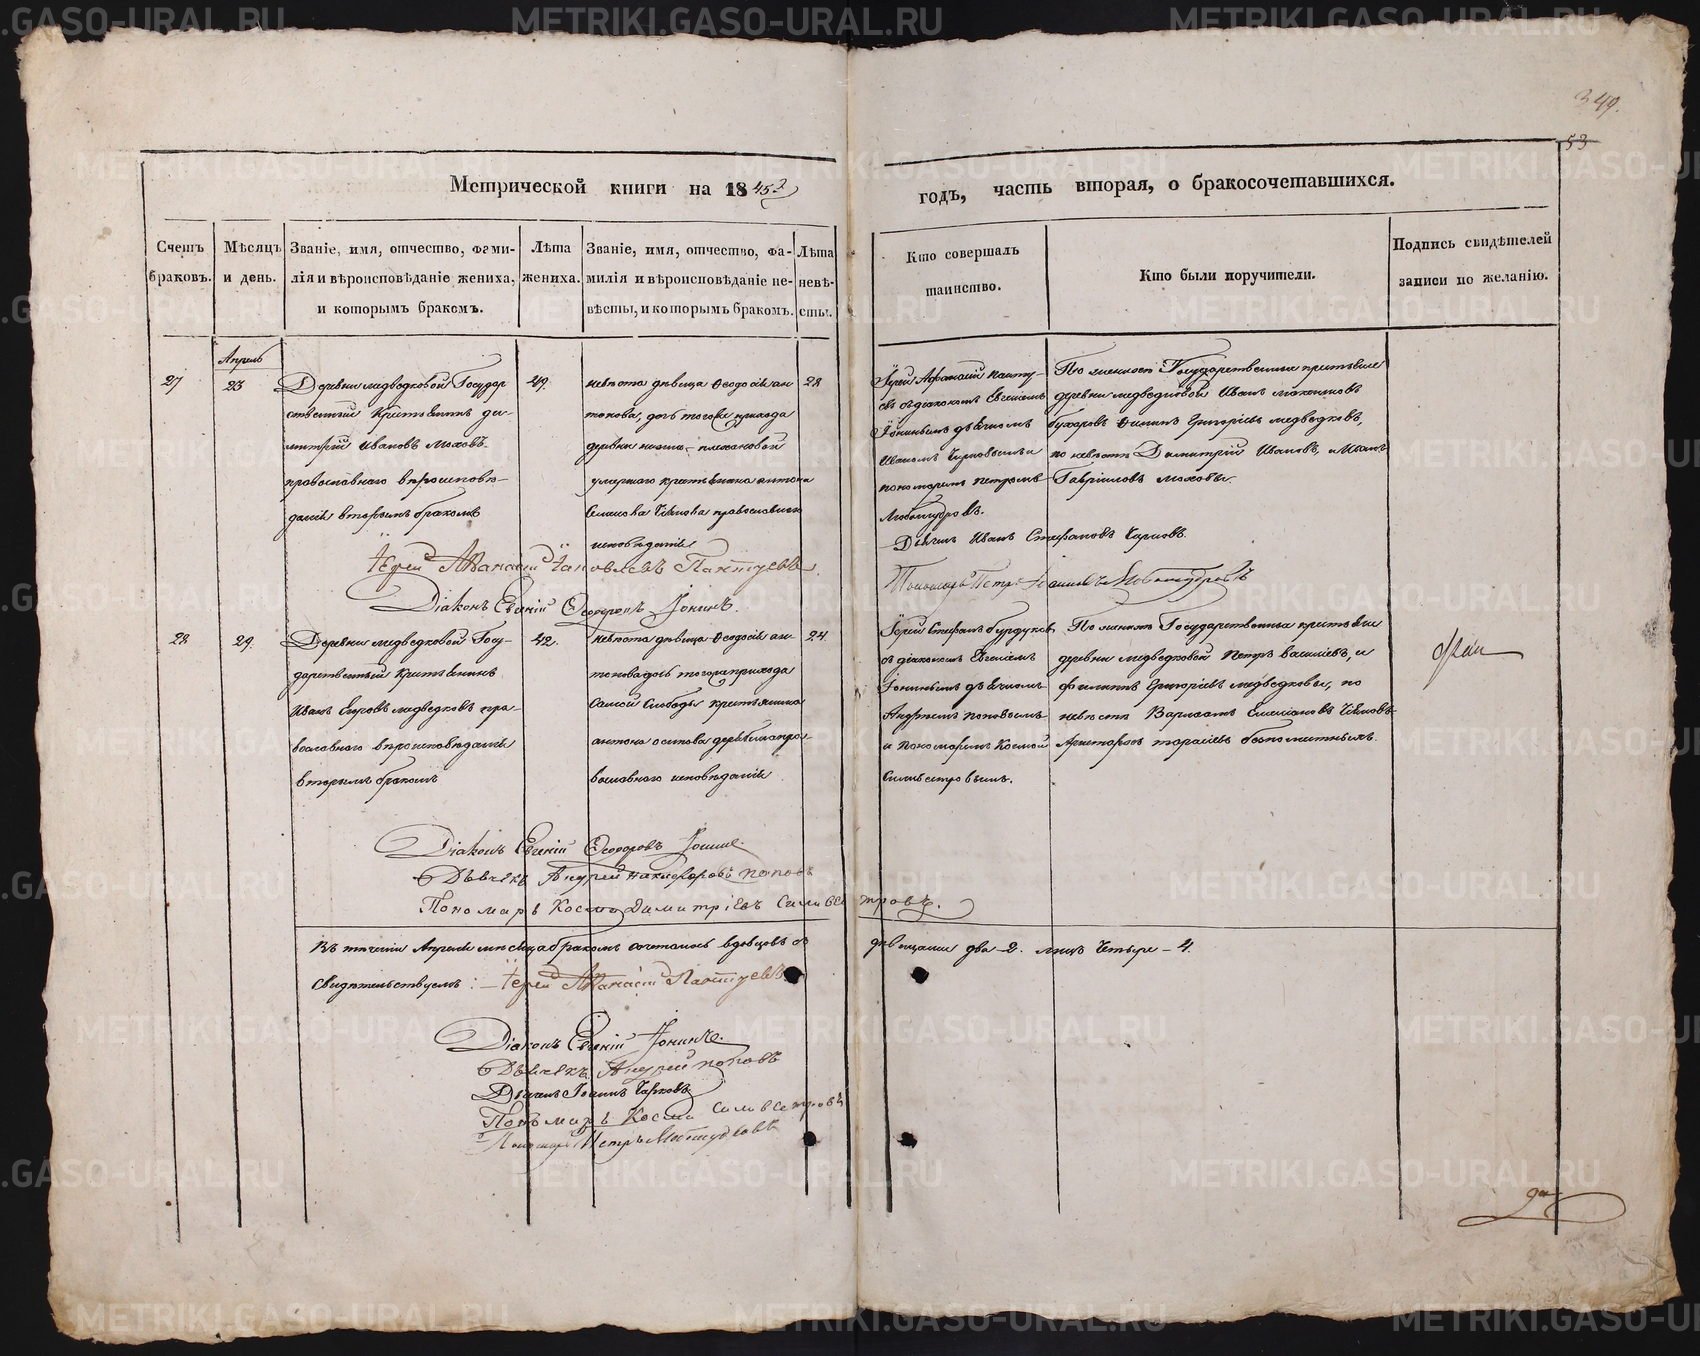 349.
53
Метрической книги на 1845З
годъ, часть вторая, о бракосочетавшихся.
Счетъ браковъ.
Мѣсяцъ и день.
Званіе, имя, отчество, фами-
лія и вѣроисповѣданіе жениха,
и которымъ бракомъ.
Лѣта
жениха.
Званіе, имя, отчество, фа-
милія и вѣроисповѣданіе не-
вѣсты, и которымъ бракомъ.
Лѣта
невѣ-
сты.
Кто совершалъ
таинство.
Кто были поручители.
Подпись свидѣтелей
записи по желанію.
Апрель
27
23
Деревни медведковой Государ
ственный Крестьянинъ ди-
митрій Ивановъ Моховъ
православнаго вѣроисповѣ-
данія вторымъ бракомъ
49.
невѣста дѣвица Ѳеодосія ан
тонова, дочь тогоже прихода
деревни
умершаго крестьянина антона
православнаго
исповѣданія
28
Іерей Афанасій Панту
евъ съ діакономъ Евгеніемъ
Іонинымъ дьячкомъ
Иваномъ Чирковымъ и
пономаремъ петромъ
Любомудровъ.
По женихѣ Государственные крестьяне
деревни медведковой Иванъ
Бухаровъ Филипъ Григорьевъ медведковъ,
по невѣстѣ Димитрій Ивановъ, и Иванъ
Гавріиловъ моховы.
Іерей Аѳанасій Іаковлевъ Пантуевъ.
Діаконъ Евгеній Ѳеодоровъ Іонинъ.
Дьячекъ Иванъ Стефановъ Чирковъ.
Пономарь Петръ Іоанновъ Любомудровъ
28
29.
Деревни медведковой Госу-
дарственный Крестьянинъ
Иванъ Егоровъ медведковъ пра-
вославнаго вѣроисповѣданія
вторымъ бракомъ
42.
невѣста дѣвица Ѳеодосія ан-
тонова дочь тогоже прихода
самой Слободы крестьянина
антона осипова пра-
вославнаго исповѣданія
24
Іерей Стефанъ Бурдуковъ
съ діакономъ Евгеніемъ
Іонинымъ дьячкомъ
Андреемъ поповымъ
и пономаремъ Космой
Сильвестровымъ.
По женихѣ Государственные крестьяне
деревни медведковой Петръ василіевъ, и
филипъ Григоріевъ медведковы, по
невѣстѣ Варлаамъ Емеліановъ
Аристархъ тарасіевъ безпометныхъ.
Діаконъ Евгеній Ѳеодоровъ Іонинъ.
Дьячекъ Андрей никифоровъ поповъ
Пономарь Косма Димитріевъ Сильвестровъ.
Въ теченіи Апреля мѣсяца бракомъ сочеталось вдовцовъ съ дѣвицами два 2. лицъ четыре - 4.
Свидѣтельствуемъ: - Іерей Аѳанасій Пантуевъ
Діаконъ Евгеній Іонинъ.
Дьячекъ Андрей поповъ
Дьячекъ Іоаннъ Чирковъ
Пономарь Косма Сильвестровъ
Пономарь Петръ Любомудровъ
METRIKI.GASO-URAL.RU